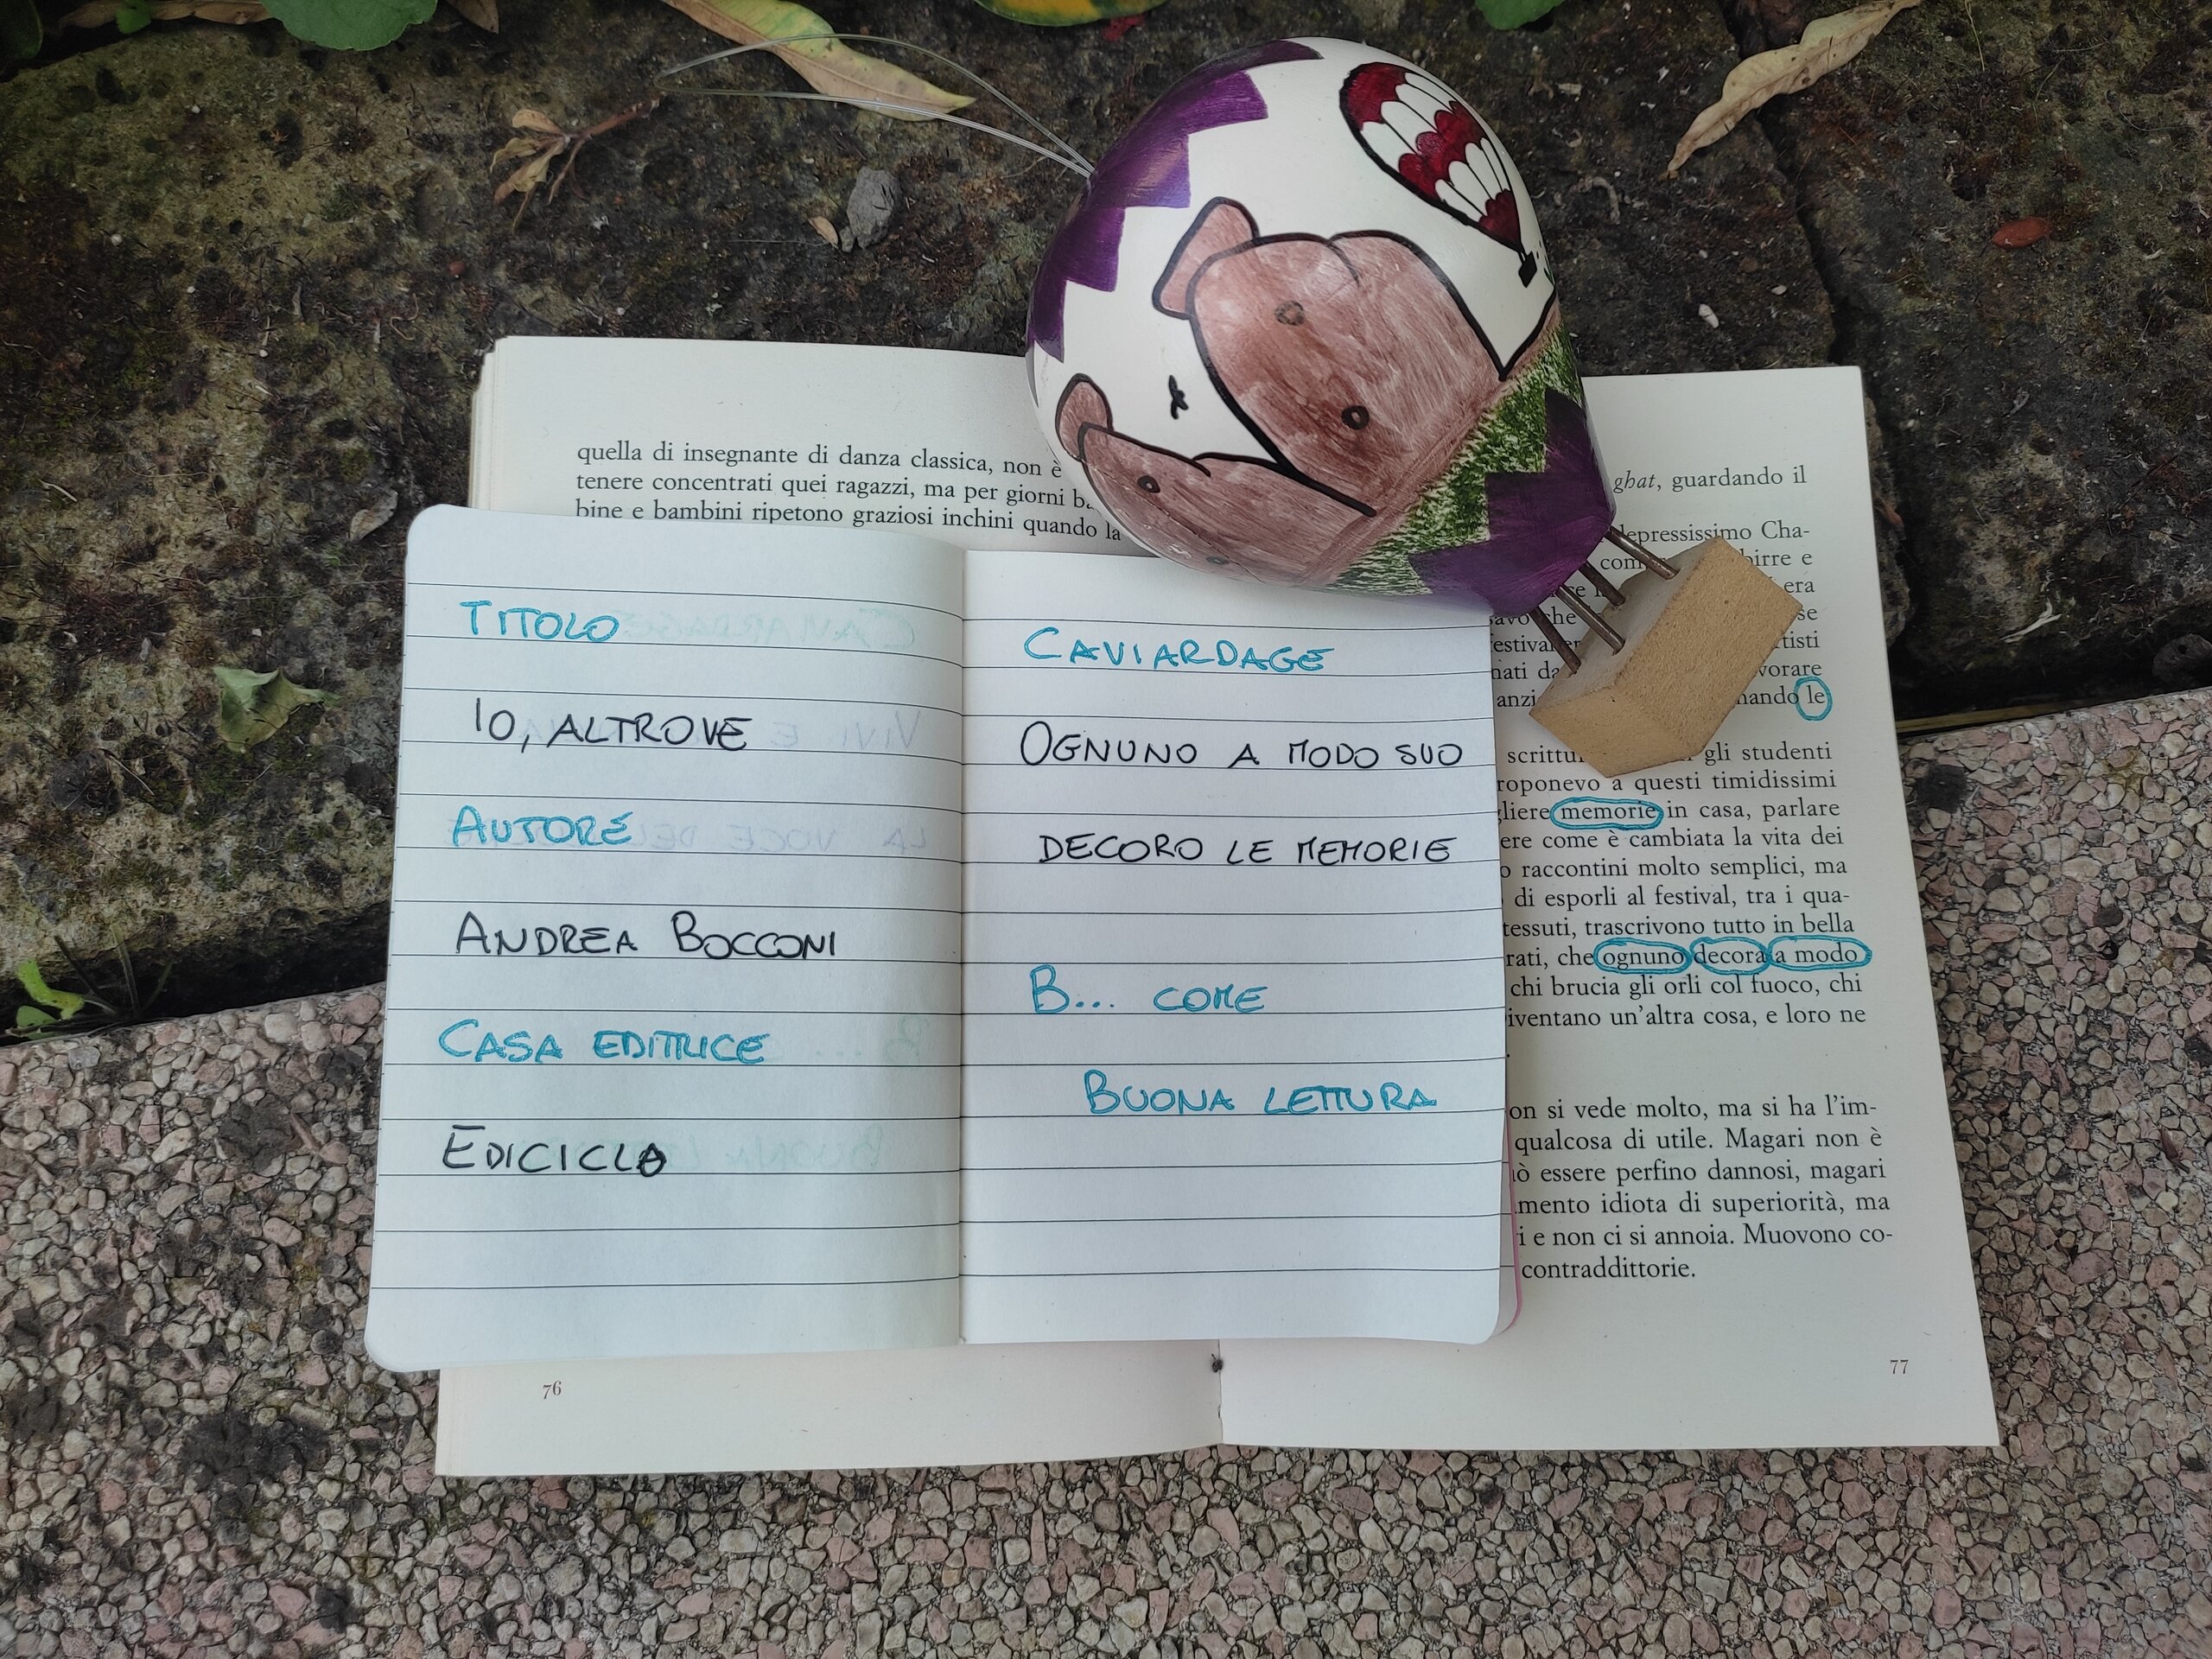 quella di insegnante di danza classica, non è
tenere concentrati quei ragazzi, ma per giorni
bine e bambini ripetono graziosi inchini quando la
76
TITOLO
IO, ALTROVE
AUTORE
ANDREA BOCCONI
CASA EDITRICE
EDICICLO
CAVIARDAGE
OGNUNO A MODO SUO
DECORO LE MEMORIE
B... COME
BUONA LETTURA
ghat, guardando il
depressissimo Cha-
birre e
era
se
le
gli studenti
roponevo a questi timidissimi
gliere memorie in casa, parlare
ere come è cambiata la vita dei
o raccontini molto semplici, ma
di esporli al festival, tra i qua-
tessuti, trascrivono tutto in bella
rati, che ognuno decora a modo
chi brucia gli orli col fuoco, chi
iventano un'altra cosa, e loro ne
on si vede molto, ma si ha l'im-
qualcosa di utile. Magari non è
ò essere perfino dannosi, magari
mento idiota di superiorità, ma
i e non ci si annoia. Muovono co-
contraddittorie.
77